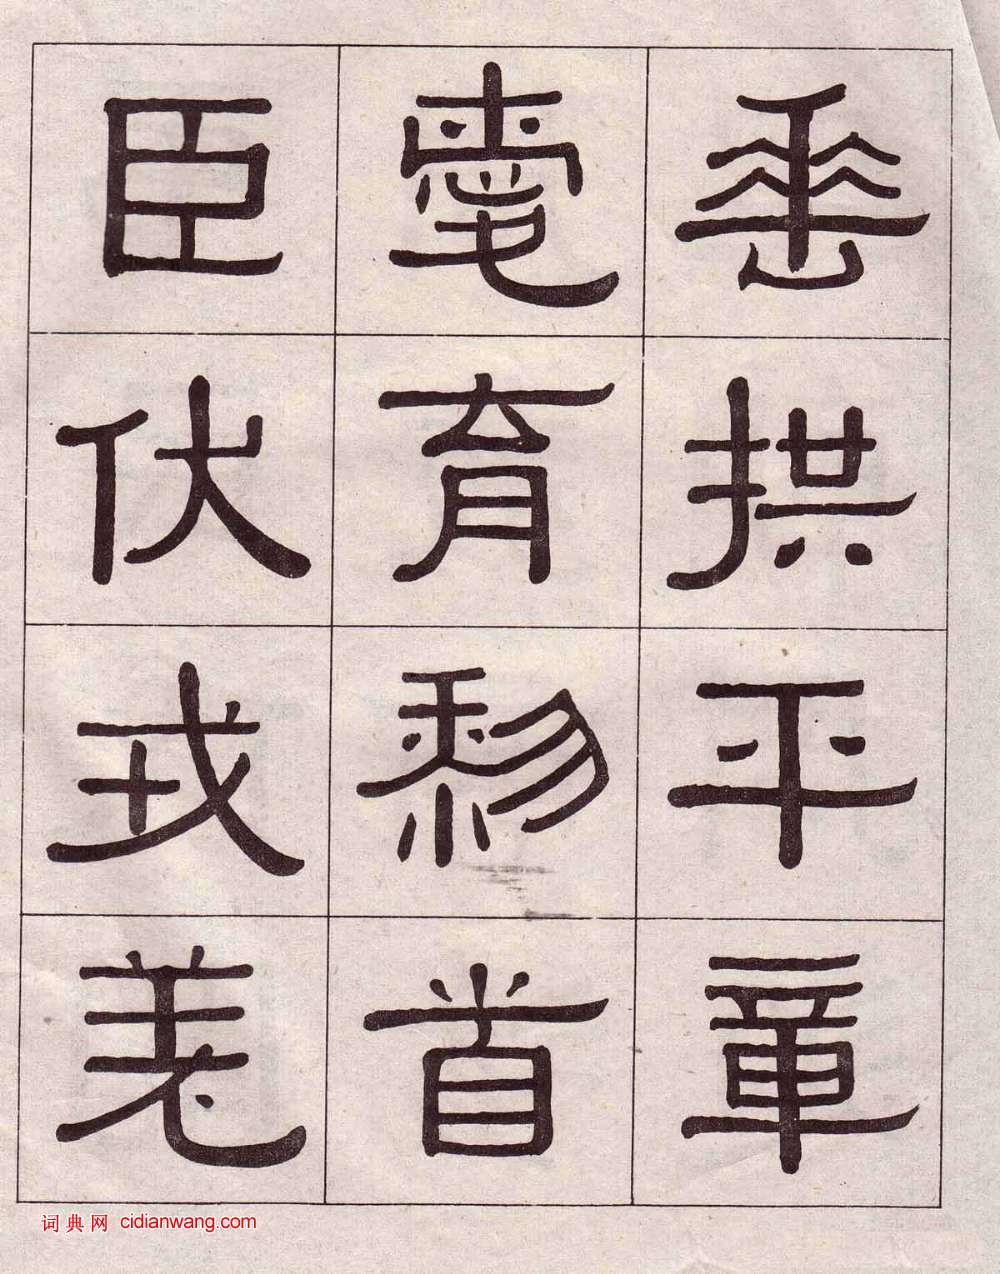 垂拱平章
愛育黎首
臣伏戎羌
词典网 cidianwang.com